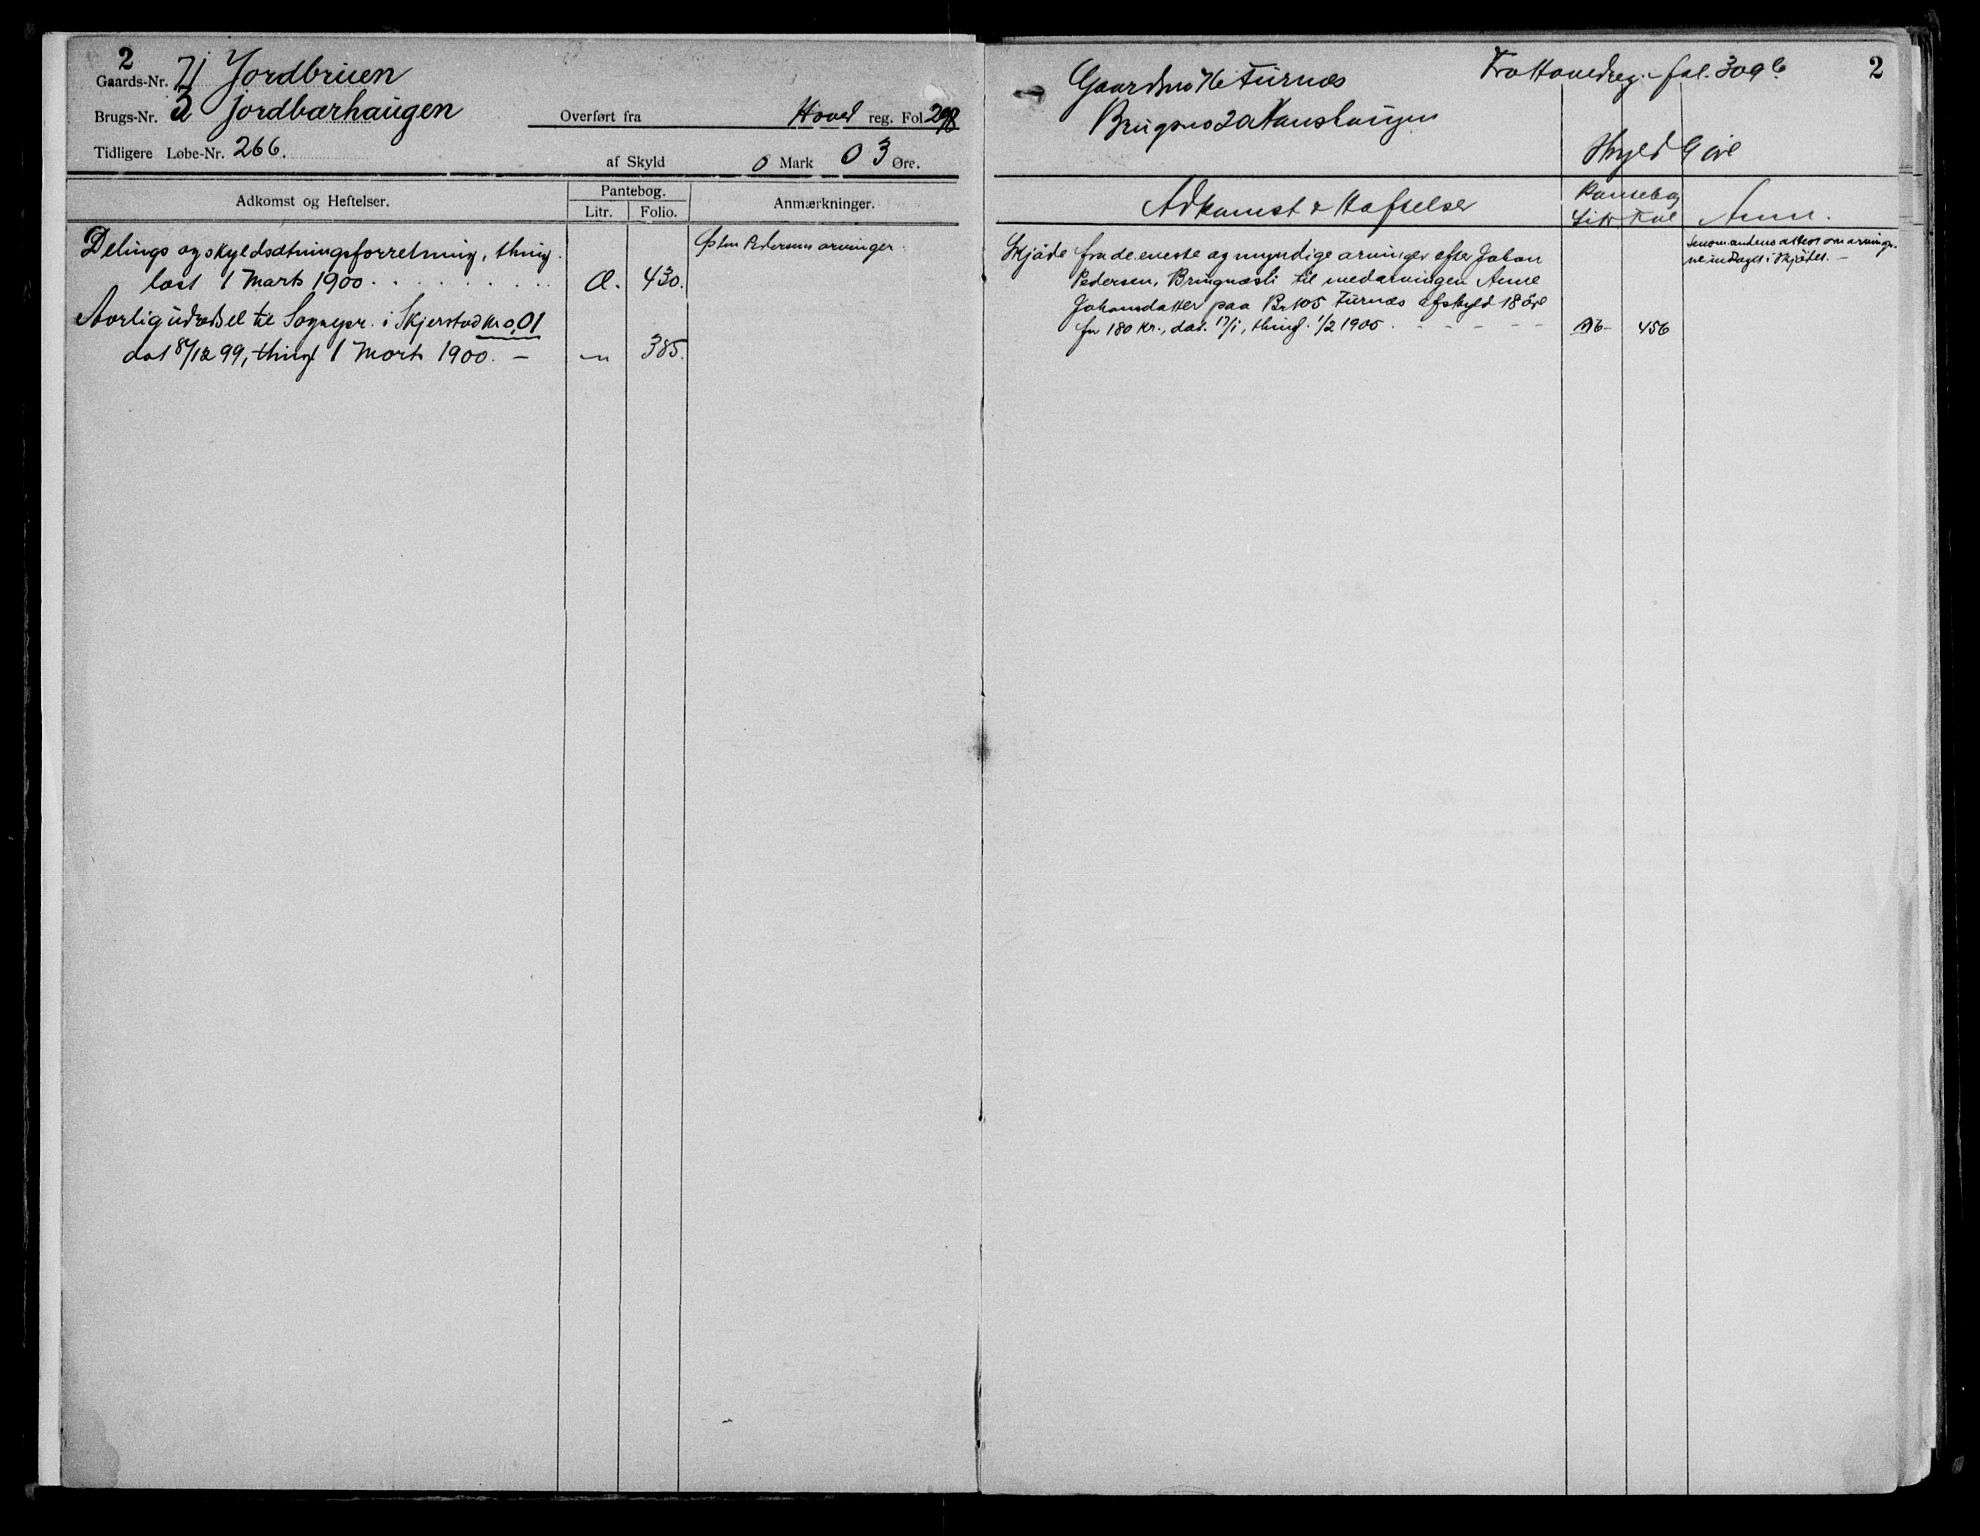 2
Gaards-Nr. 71 Jordbruen
Brugs-Nr. 3 Jordbærhaugen
Overført fra Hoved reg. Fol 298
Tidligere Løbe-Nr. 266.
af Skyld 0 Mark 03 Øre.
Adkomst og Heftelser.
Pantebog.
Litr. Folio.
Anmærkninger.
Delings og skyldsætningsforretning, thing
læst 1 Marts 1900. Æ. 430.
Østen Pedersens arvinger.
Aarlig udredsel til Sognepr. i Skjerstad Kr 0,01
dat 8/12 99, thingl 1 Marts 1900. — — 385.
2
Gaardsno 76 Furnæs
Fra Hovedreg. fol. 309 b
Brugsno 20 Hanshaugen
Skyld 9 øre
Adkomst & Hæftelser
Pantebog
Litr Fol
Anm.
Skjøde fra de eneste og myndige arvinger efter Johan
Pedersen, Bringnæsli til medarvingen Anne
Johansdatter paa Br no 5 Furnæs af skyld 18 øre
for 180 Kr., dat. 17/1, thingl. 1/2 1905 - - - - 456
Lensmandens attest om arvinge-
ne indtaget i Skjødet. —